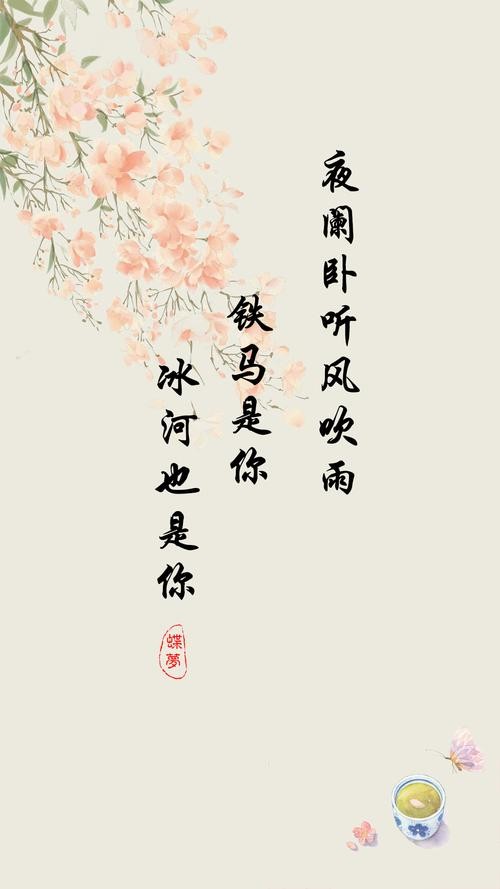 夜阑卧听风吹雨
铁马是你
冰河也是你
蝶夢